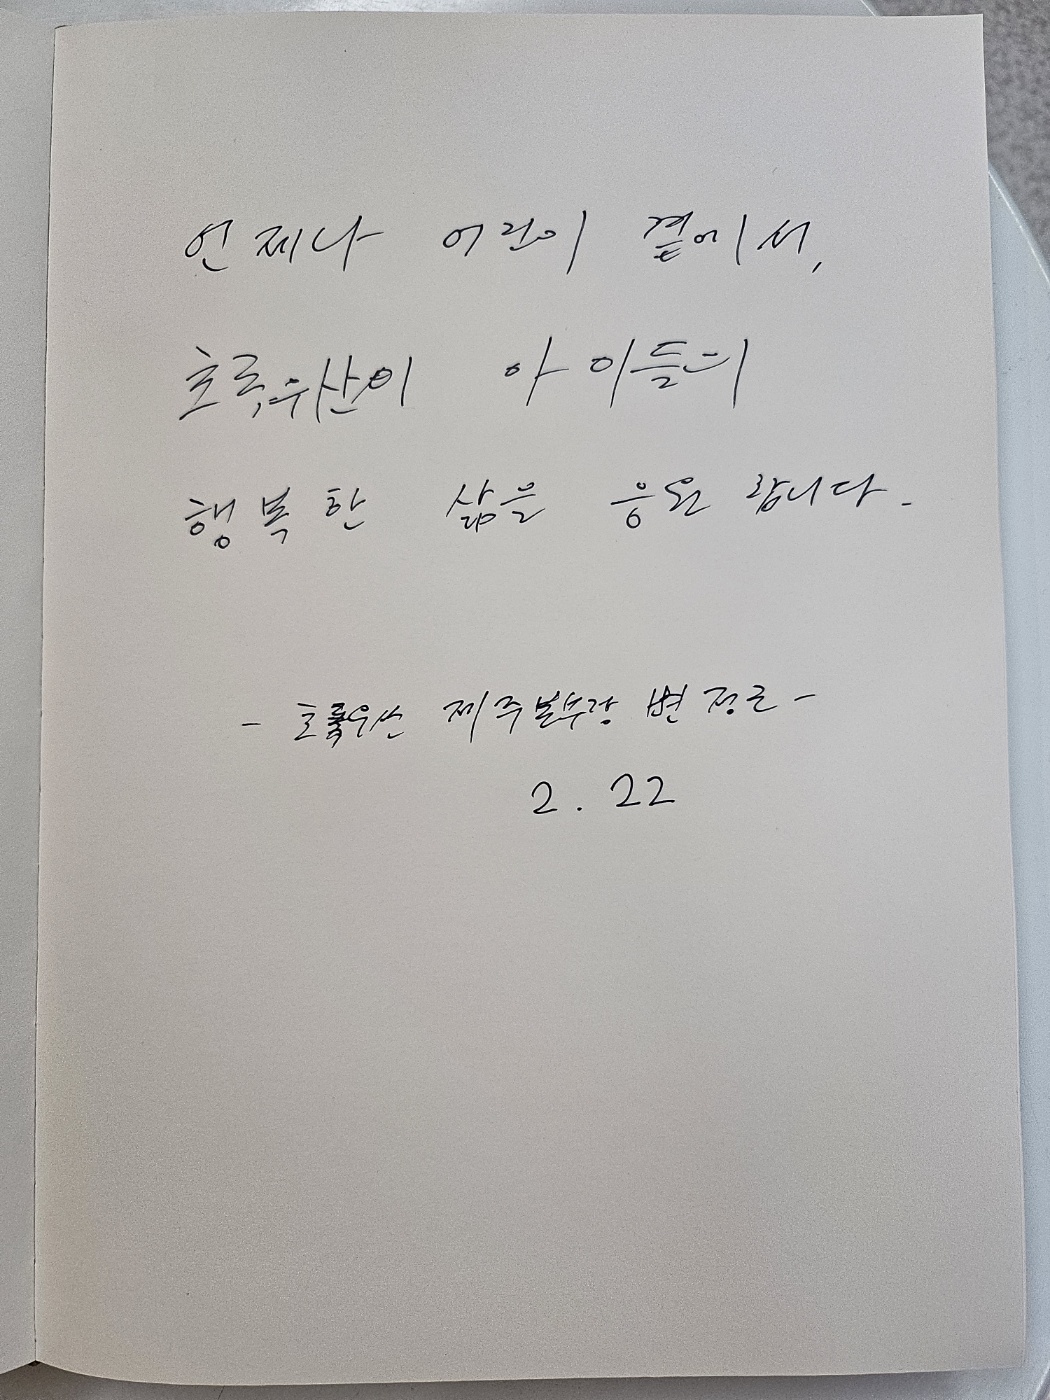 언제나 어린이 곁에서,
초록우산이 아이들의
행복한 삶을 응원합니다.
- 초록우산 제주본부장 변정근 -
2. 22